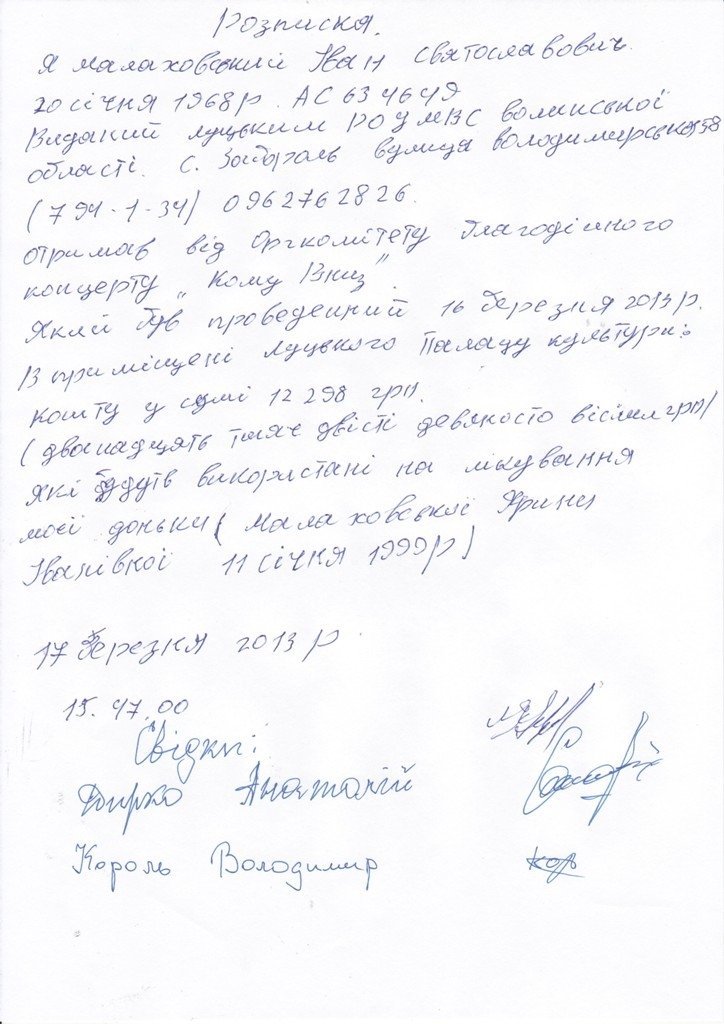 Розписка.
Я Малаховський Іван Святославович
20 січня 1968р. АС 634649
Виданий Луцьким РОУМВС волинської
області. с. Забороль вулиця володимирська 58
(794-1-34) 0962762826.
отримав від Оргкомітету благодійного
концерту „Кому Вниз".
Який був проведений 16 березня 2013р.
В приміщені Луцького Палацу культури:
кошти у сумі 12 298 грн.
(дванадцять тисяч двісті девяносто вісім грн)
які будуть використані на лікування
моєї доньки (Малаховської Ярини
Іванівної 11 січня 1999р)
17 березня 2013 р.
15.47.00
Свідки:
Анатолій
Король Володимир
Кор